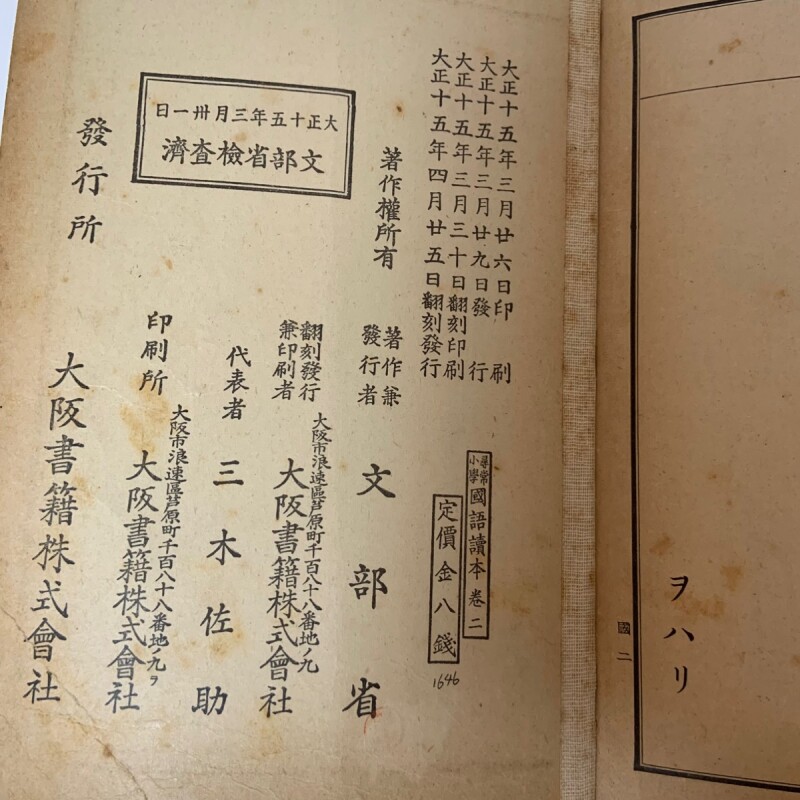 ヲハリ
國二
大正十五年三月廿六日印刷
大正十五年三月廿九日發行
大正十五年三月三十日翻刻印刷
大正十五年四月廿五日翻刻發行
尋常小學國語讀本卷二
定價金八錢
1646
著作權所有
著作兼發行者 文部省
翻刻發行兼印刷者
大阪市浪速區芦原町千百八十八番地ノ九
大阪書籍株式會社
代表者 三木佐助
大阪市浪速區芦原町千百八十八番地ノ九ヲ
印刷所 大阪書籍株式會社
大正十五年三月卅一日
文部省檢查濟
發行所 大阪書籍株式會社